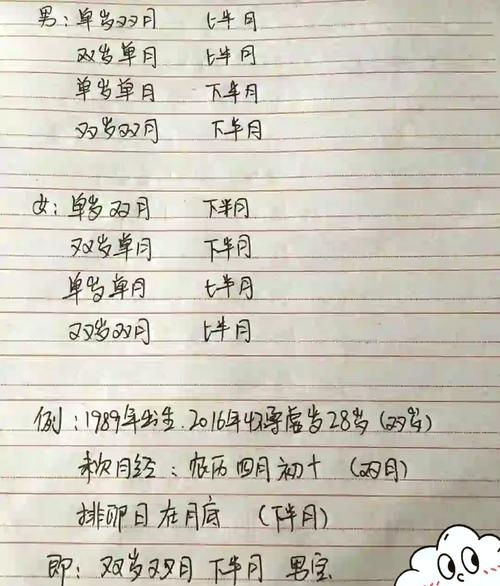 男：单岁双月　上半月
双岁单月　上半月
单岁单月　下半月
双岁双月　下半月
女：单岁双月　下半月
双岁单月　下半月
单岁单月　上半月
双岁双月　上半月
例：1989年出生.2016年 虚岁28岁（双岁）
末次月经：农历四月初十　（双月）
排卵日在月底　（下半月）
即：双岁双月 下半月 男宝